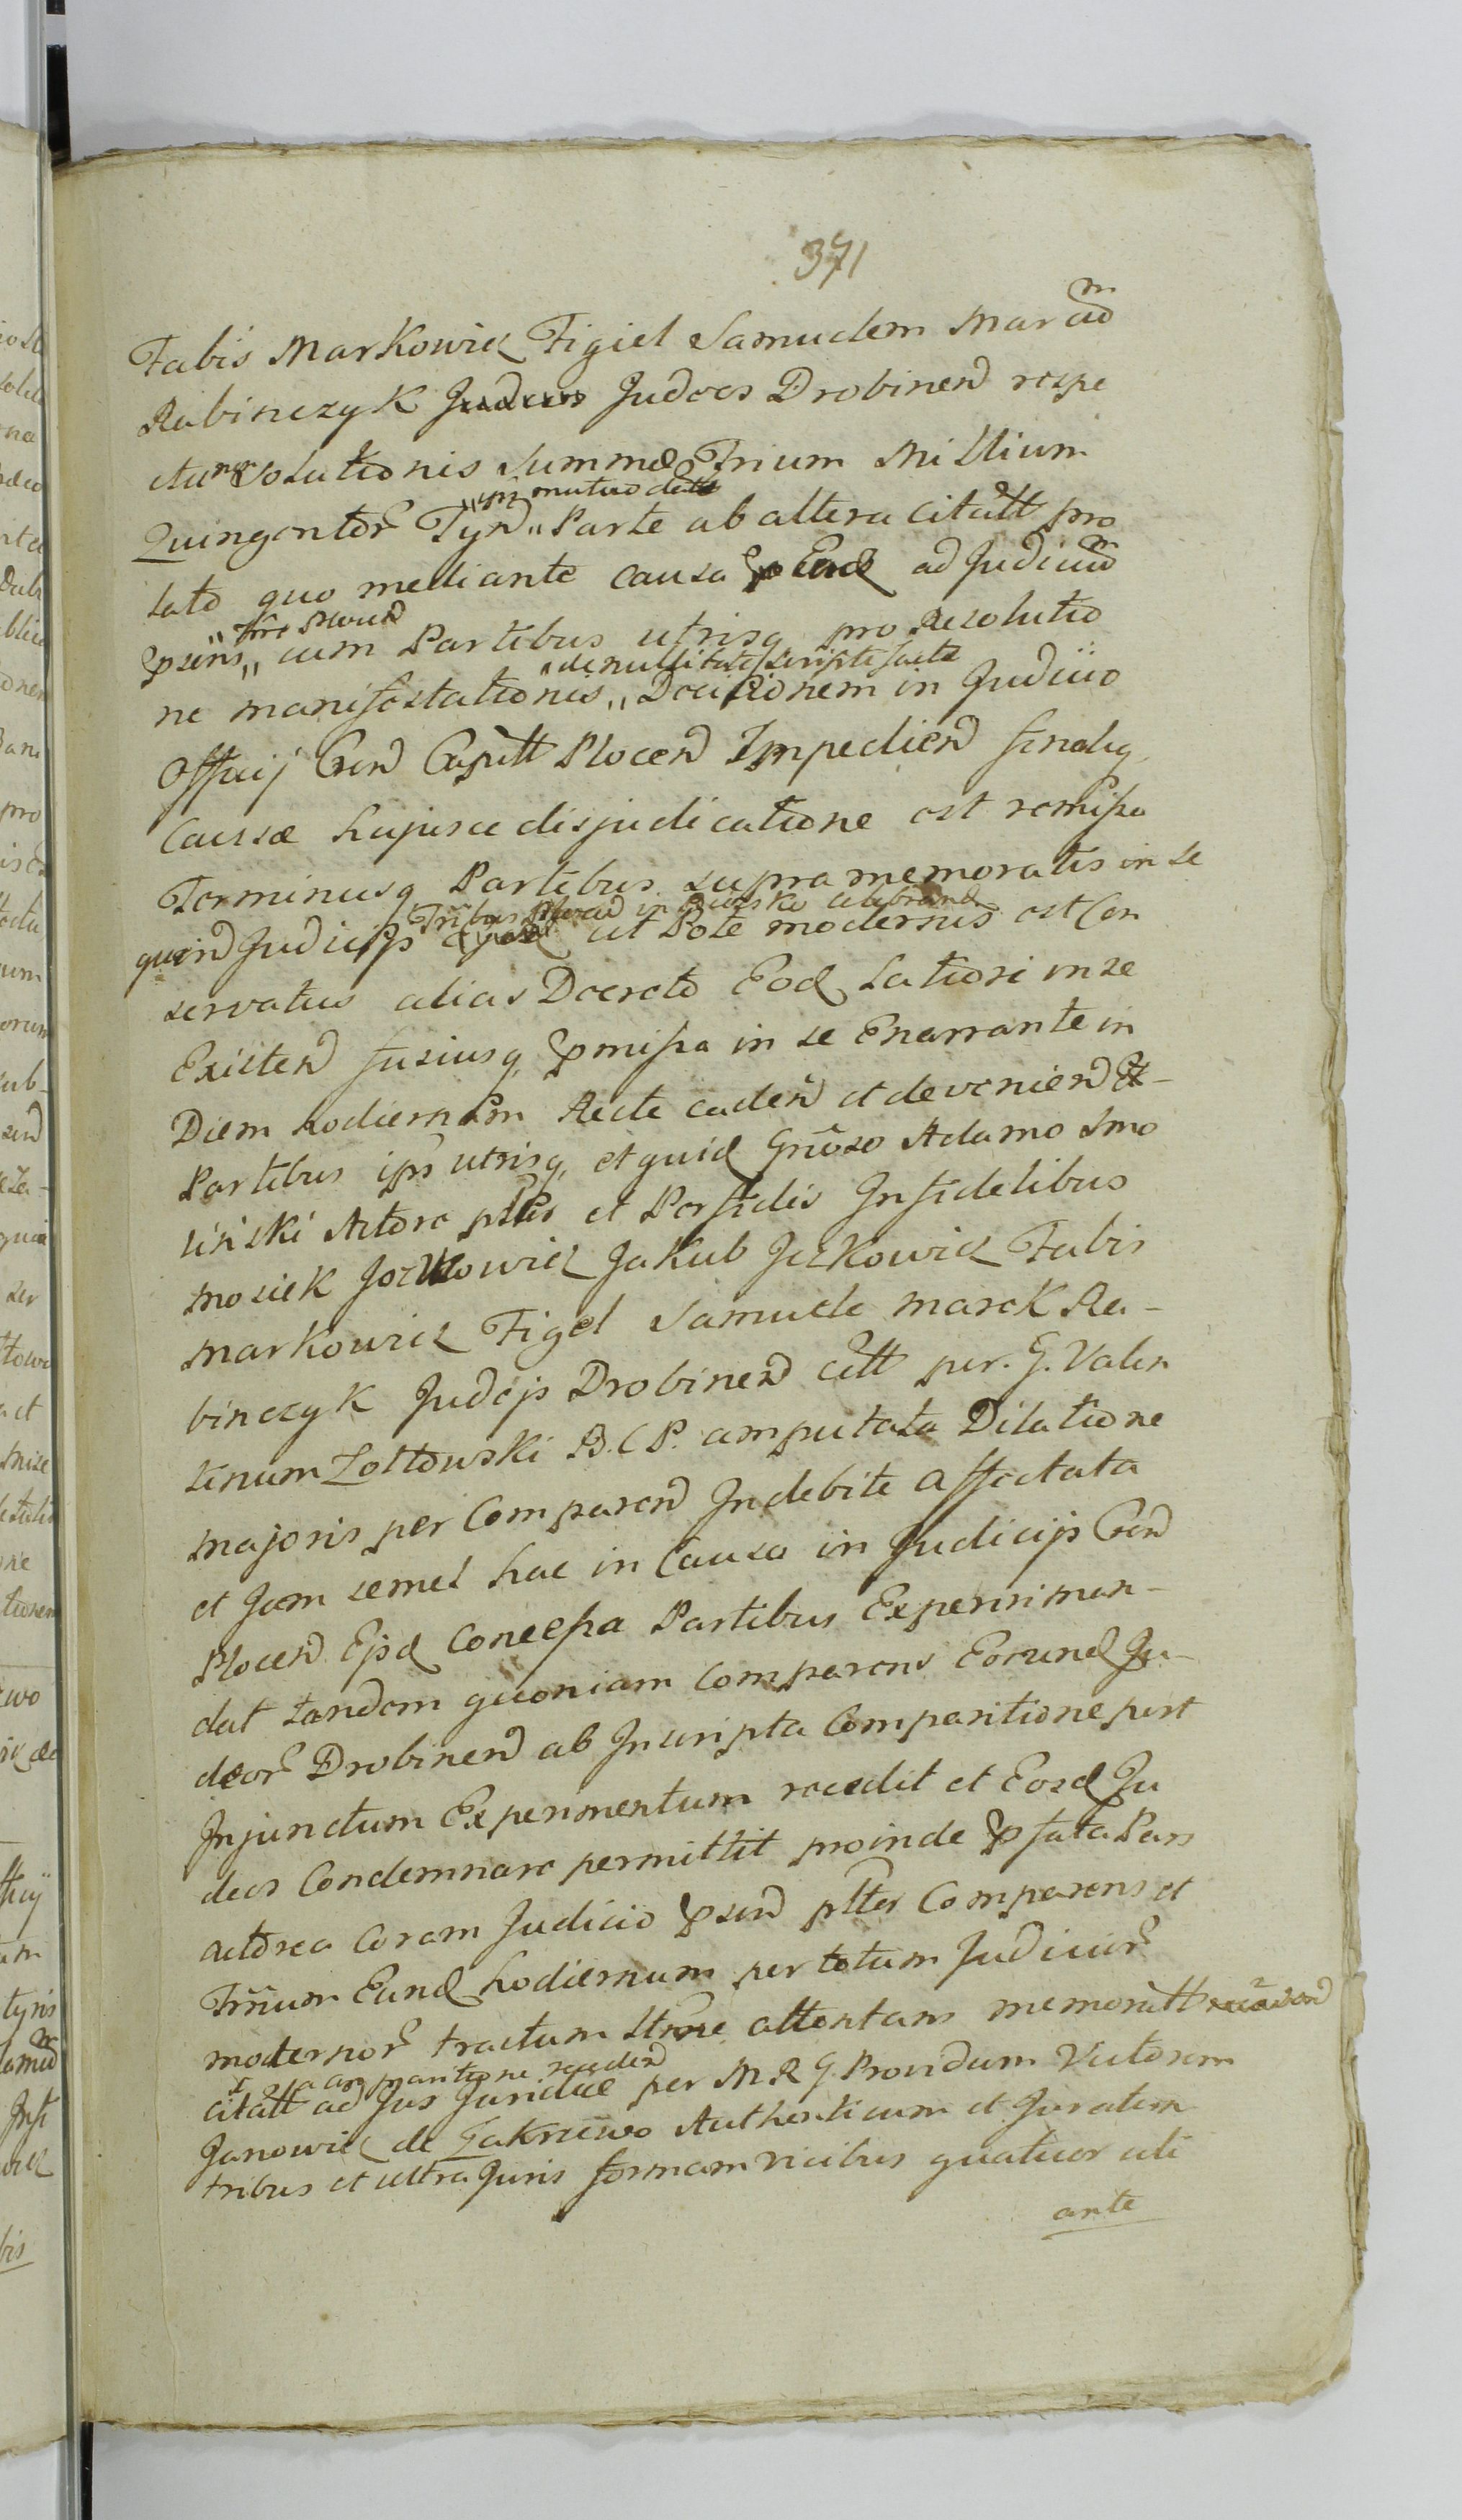 371
Fabis Markowicz Figiel Samuelem Marcum
Rabinczyk Judeos Drobinen respe
ctu Solutionis Summæ Trium Millium
ipsis mutuo datt
Quingentor Tynf „ Parte ab altera citatt pro
lato quo mediante causa Ead ad Judicium
„ Trre Plocen
pnsens „ cum Partibus utrisq pro Resolutio
„ de nullitate scripti facte
ne manifestationis „ Decisionem in Judicio
Officij Cren Capitt Plocen Impedien finaliq
Caussæ hujusce disjudicatione est remissa
Terminusq Partibus supra memoratis in se
Trribus Plocen in celebrand
quen Judicijs ut Pote modernus est Con
servatus alias Decreto Eod Latiori in se
Existen fusiusq pmissa in se Enarrante in
Diem hodiernum Recte caden et devenien
Partibus ips utrisq, et quid Gnoso Adamo Smo
linski Actore pltr et Perfidis Infidelibus
Mosiek Joskowicz Jakub Jckowicz Fabis
Markowicz Figel Samuele Marek Ra-
binczyk Judejs Drobinen citt per. G. Valen
tinum Zoltowski B.C.P. amputata Dilatione
majoris per Comparen Indebite affectata
et Jam semel hac in Causa in Judicijs Cren
Plocen Ejsd Concessa Partibus Experiri man-
dat tandem quoniam Comparens Eorund Ju-
deor Drobinen ab Inscripta Comparitione post
Injunctum Experimentum recedit et Eosd Ju
deos Condemnare permittit proinde pfata Pars
actorea Coram Judicio psen plter Comparens et
Trnum Eund hodiernum per totum Judicior
modernor tractum Strne attentans memoratt
a comparitione receden
citatt ad Jus Juridice per M. R. G. Providum Victorem
Janowicz de Authenticum et Juratum
tribus et ultra Juris formam vicibus quatuor uti
ante